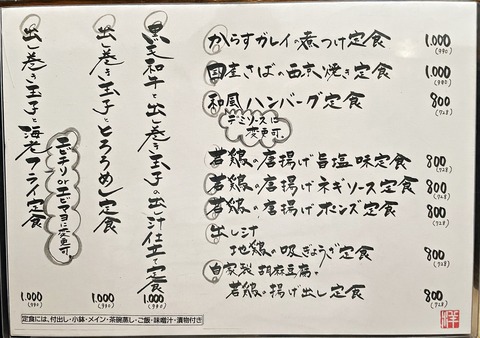 からすガレイの煮つけ定食 1.000
(990)
国産さばの西京焼き定食 1.000
(990)
和風ハンバーグ定食 800
(728)
デミソースに
変更可.
若鶏の唐揚げ旨塩味定食 800
(728)
若鶏の唐揚げネギソース定食 800
(728)
若鶏の唐揚げポンズ定食 800
(728)
出し汁
地鶏の吸ぎょうざ定食 800
(728)
自家製胡麻豆腐と
若鶏の揚げ出し定食 800
(728)
黒毛和牛と出し巻き玉子の出し汁仕立て定食 1.000
(990)
出し巻き玉子ととろろめし定食 1.000
(990)
出し巻き玉子と海老フライ定食 1.000
(990)
エビチリorエビマヨに変更可
定食には、付出し・小鉢・メイン・茶碗蒸し・ご飯・味噌汁・漬物付き